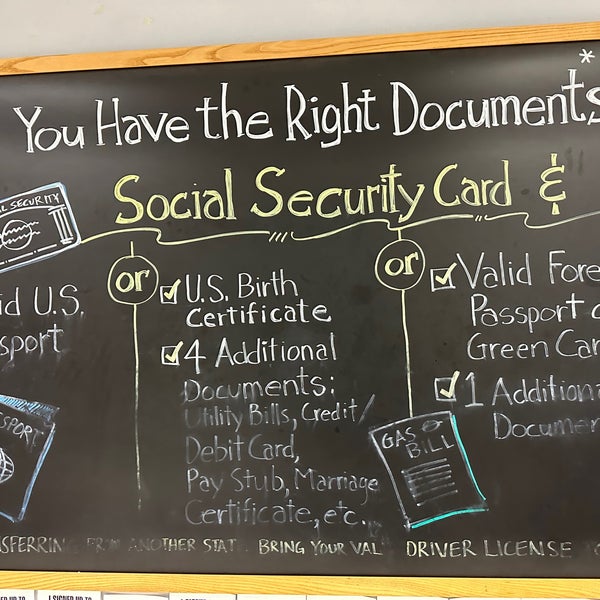 *
You Have the Right Documents
Social Security Card &
AL SECURITY
or
or
id U.S.
sport
SSPORT
☑ U.S. Birth
Certificate
☑ 4 Additional
Documents:
Utility Bills, Credit/
Debit Card,
Pay Stub, Marriage
Certificate, etc.
☑ Valid Fore
Passport o
Green Car
☑ 1 Additiona
Documen
GAS
BILL
NSFERRING FROM ANOTHER STAT BRING YOUR VAL DRIVER LICENSE
I SIGNED UP TO